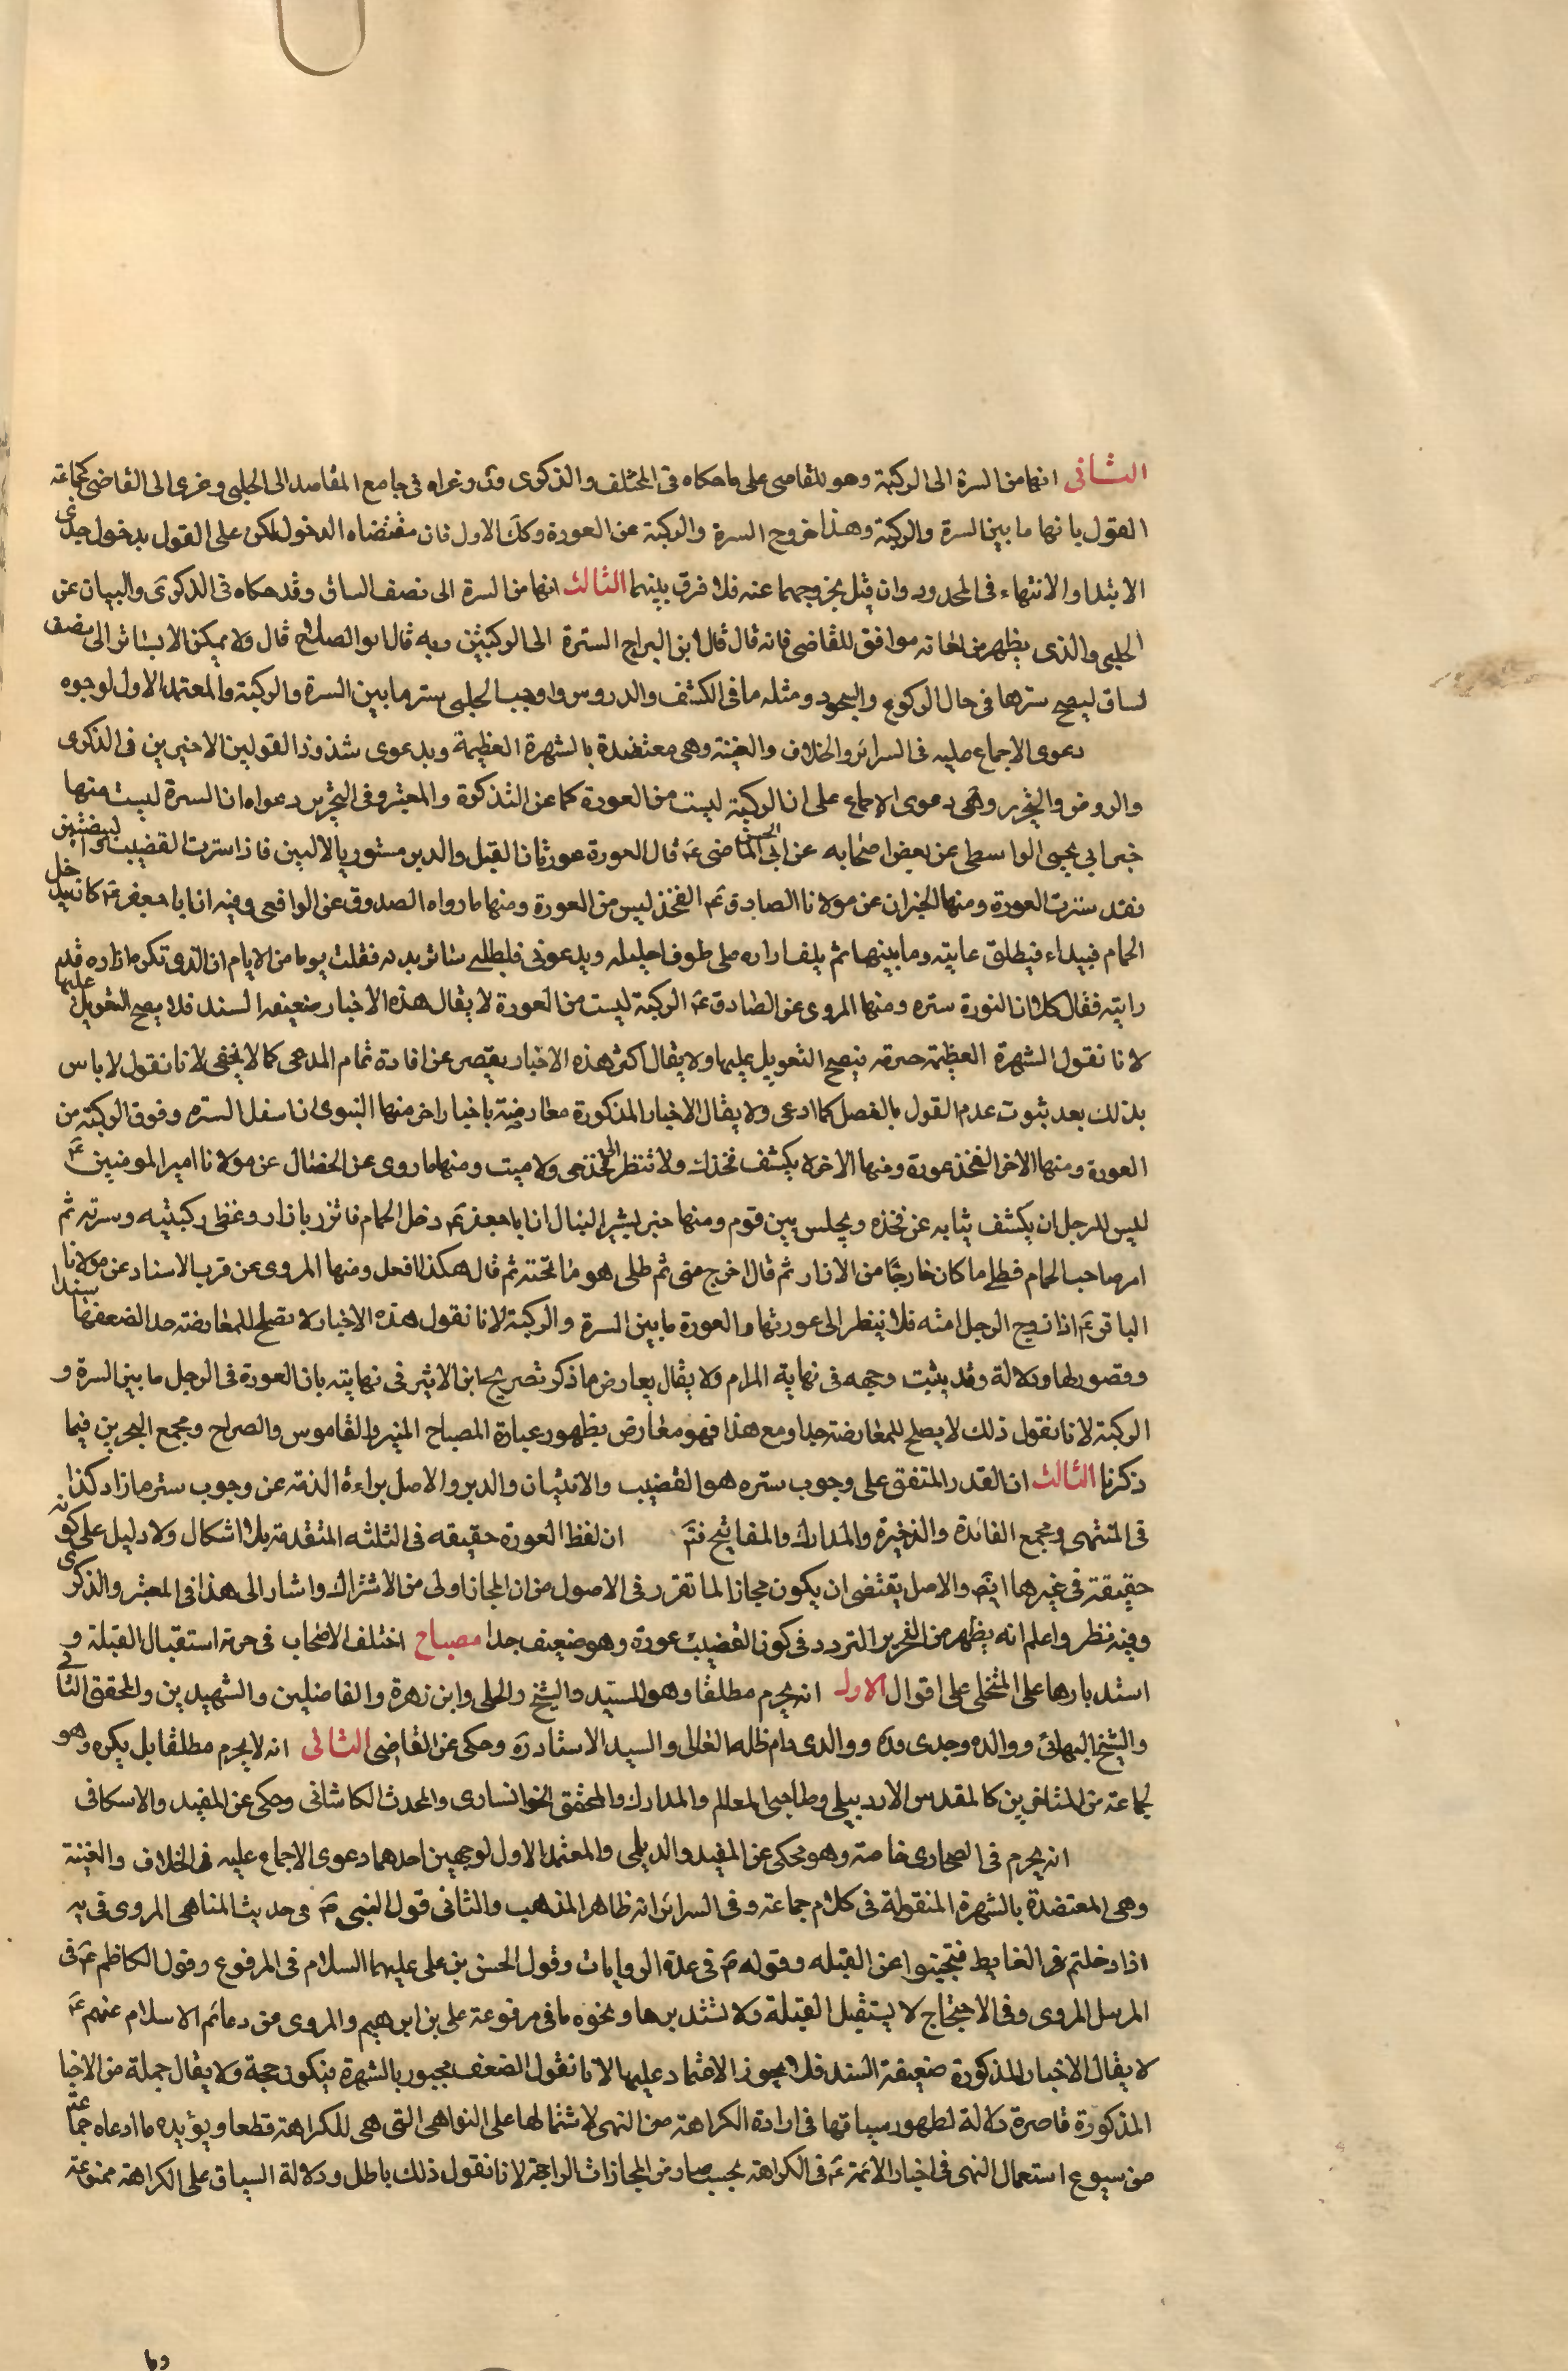 الثانى انها من السرة الى الركبة وهو للقاضى على ما حكاه فى المختلف والذكرى وعزاه فى جامع المقاصد الى الحلبى وعزى الى القاضى كجماعة
القول بانها ما بين السرة والركبة وهذا خروج السرة والركبة عن العورة وكك الاول فان مقتضاه الدخول لكن على القول بدخول حدى
الابتداء والانتهاء فى المحدود وان قيل بخروجهما عنه فلا فرق بينهما الثالث انها من السرة الى نصف الساق وقد حكاه فى الذكرى والبيان عن
الحلبى والذى يظهر من انه موافق للقاضى فانه قال قال ابن البراج السترة الى الركبتين وبه قال ابو الصلاح قال ولا يمكن الا بساتر الى نصف
لساق ليصح سترها فى حال الركوع والسجود ومثله ما فى الكشف والدروس واوجب الحلبى ستر ما بين السرة والركبة والمعتمد الاول لوجوه
دعوى الاجماع عليه فى السرائر والخلاف والغنية وهى معتضدة بالشهرة العظيمة وبدعوى شذوذ القولين الاخيرين فى الذكرى
والروض والتحرير وهى دعوى الاجماع على ان الركبة ليست من العورة كما عن التذكرة والمعتبر وفى التحرير دعواه ان السرة ليست منها
خبر ابى يحيى الواسطى عن بعض اصحابه عن ابى الحسن الماضى ع قال العورة عورتان القبل والدبر مستور بالاليين فاذا سترت القضيب والبيضتين
فقد سترت العورة ومنها الخبران عن مولانا الصادق ع الفخذ ليس من العورة ومنها ما رواه الصدوق عن الوافعى وفيه ان ابا جعفر ع كان يدخل
الحمام فيبداء فيطلى عانته وما بينهما ثم يلف ازاره على طرف احليله ويدعونى فاطلى سائر بدنه فقلت يوما من الايام ان الذى تكره ان اراه قد
رايته فقال كلا ان النورة ستره ومنها المروى عن الصادق ع الركبة ليست من العورة لا يقال هذه الاخبار ضعيفه السند فلا يصح التعويل عليها
لانا نقول الشهرة العظيمة فيصح التعويل عليها ولا يقال اكثر هذه الاخبار يقصر عن افادة تمام المدعى كما لا يخفى لانا نقول لا باس
بذلك بعد ثبوت عدم القول بالفصل كما ادعى ولا يقال الاخبار المذكورة معارضة باخبار اخر منها النبوى ان اسفل السرة وفوق الركبة من
العورة ومنها الاخر الفخذ عورة ومنها الاخر لا يكشف فخذك ولا تنظر الى فخذ حى ولا ميت ومنها ما روى عن الخصال عن مولانا امير المومنين ع
ليس للرجل ان يكشف ثيابه عن فخذه ويجلس بين قوم ومنها خبر بشير النبال ان ابا جعفر ع دخل الحمام فاتزر بازار وغطى ركبتيه وسرته ثم
امر صاحب الحمام فطلى ما كان خارجا من الازار ثم قال اخرج عنى ثم طلى هو ما تحته ثم قال هكذا افعل ومنها المروى عن قرب الاسناد عن مولانا
الباقر ع اذا زوج الرجل امته فلا ينظر الى عورتها والعورة ما بين السرة والركبة لانا نقول هذه الاخبار لا تصلح للمعارضة جدا لضعفها سندا
وقصورها دلالة وقد يثبت وجهه فى نهاية المرام ولا يقال يعارض ما ذكر تصريح ابن الاثير فى نهايته بان العورة فى الرجل ما بين السرة و
الركبة لانا نقول ذلك لا يصلح للمعارضة جدا ومع هذا فهو معارض بظهور عبارة المصباح المنير والقاموس والصراح ومجمع البحرين فيما
ذكرنا الثالث ان القدر المتفق على وجوب ستره هو القضيب والانثيان والدبر والاصل براءة الذمة عن وجوب ستر ما زاد كذا
فى المنتهى ومجمع الفائدة والذخيرة والمدارك والمفاتيح فتم ان لفظ العورة حقيقه فى الثلثه المتقدمة بلا اشكال ولا دليل على كونه
حقيقة فى غيرها ايضا والاصل يقتضى ان يكون مجازا لما تقرر فى الاصول من ان المجاز اولى من الاشتراك واشار الى هذا فى المعتبر والذكرى
وفيه نظر واعلم انه يظهر من التحرير التردد فى كون القضيب عورة وهو ضعيف جدا مصباح اختلف الاصحاب فى حرمة استقبال القبلة و
استدبارها على المتخلى على اقوال الاول انه يحرم مطلقا وهو للسيد والشيخ والحلى وابن زهرة والفاضلين والشهيدين والمحقق الثانى
والشيخ البهائى ووالده وجدى ووالدى دام ظله العالى والسيد الاستاد ره وحكى عن القاضى الثانى انه لا يحرم مطلقا بل يكره وهو
لجماعة من المتاخرين كالمقدس الاردبيلى وصاحبى المعالم والمدارك والمحقق الخوانسارى والمحدث الكاشانى وحكى عن المفيد والاسكافى
انه يحرم فى الصحارى خاصة وهو محكى عن المفيد والديلمى والمعتمد الاول لوجهين احدهما دعوى الاجماع عليه فى الخلاف والغنية
وهى المعتضدة بالشهرة المنقولة فى كلام جماعة وفى السرائر انه ظاهر المذهب والثانى قول النبى ص فى حديث المناهى المروى فى يه
اذا دخلتم الغايط فتجنبوا عن القبله وقوله ص فى عدة الروايات وقول الحسن بن على عليهما السلام فى المرفوع وقول الكاظم ع فى
المرسل المروى وفى الاحتجاج لا يستقبل القبلة ولا تستدبرها ونحوه ما فى مرفوعة على بن ابرهيم والمروى من دعائم الاسلام عنهم ع
لا يقال الاخبار المذكورة ضعيفة السند فلا يجوز الاعتماد عليها لانا نقول الضعف مجبور بالشهرة فيكون حجة ولا يقال جملة من الاخبا
المذكورة قاصرة دلالة لظهور سياقها فى ارادة الكراهة من النهى لاشتمالها على النواهى التى هى للكراهة قطعا ويؤيده ما ادعاه جماعة
من شيوع استعمال النهى فى اخبار الائمة ع فى الكراهة بحيث صار من المجازات الراجحة لانا نقول ذلك باطل ودلالة السياق على الكراهة ممنوعة